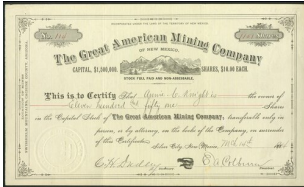 INCORPORATED UNDER THE LAWS OF THE TERRITORY OF NEW MEXICO.
The Great American Mining Company
OF NEW MEXICO.
CAPITAL, $1,500,000. SHARES, $10.00 EACH.
STOCK FULL PAID AND NON-ASSESSABLE.
This is to Certify that Annie C. Knight is the owner of
Eleven hundred and fifty one Shares
in the Capital Stock of The Great American Mining Company, transferable only in
person, or by attorney, on the books of the Company, on surrender
of this Certificate.
Silver City, New Mexico,